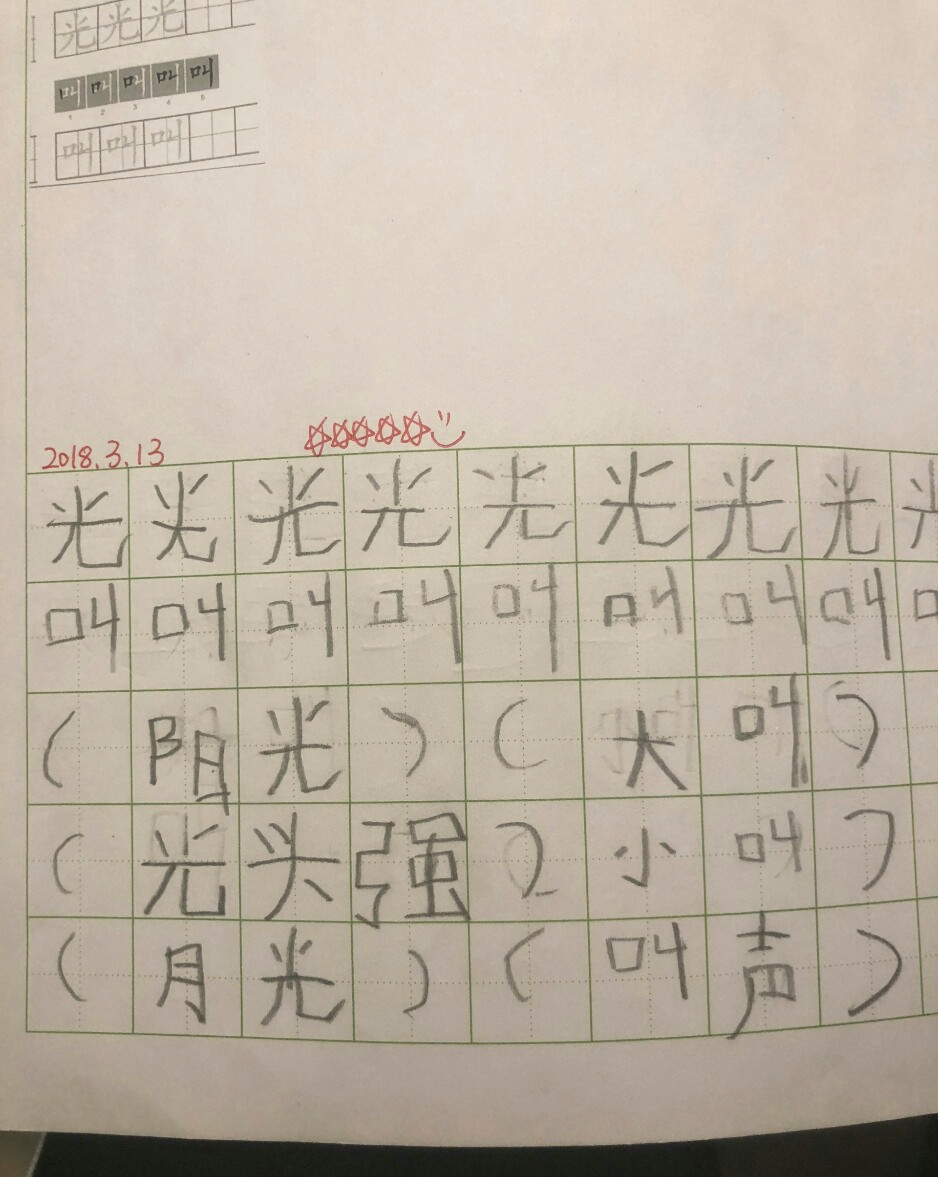 光光光
叫叫叫叫叫
1 2 3 4 5
叫叫叫
2018.3.13
光光光光光光光光光
叫叫叫叫叫叫叫叫
（阳光）（大叫）
（光头强）小叫）
（月光）（叫声）